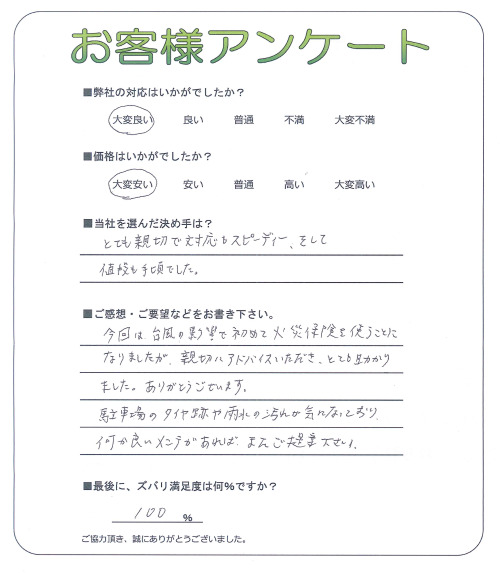 お客様アンケート
■弊社の対応はいかがでしたか？
大変良い 良い 普通 不満 大変不満
■価格はいかがでしたか？
大変安い 安い 普通 高い 大変高い
■当社を選んだ決め手は？
とても親切で対応もスピーディー、そして
値段も手頃でした。
■ご感想・ご要望などをお書き下さい。
今回は台風の影響で初めて火災保険を使うことに
なりましたが、親切にアドバイスいただき、とても助かり
ました。ありがとうございます。
駐車場のタイヤ跡や雨水の汚れが気になっており、
何か良いメンテがあれば、またご提案下さい。
■最後に、ズバリ満足度は何%ですか？
100 %
ご協力頂き、誠にありがとうございました。